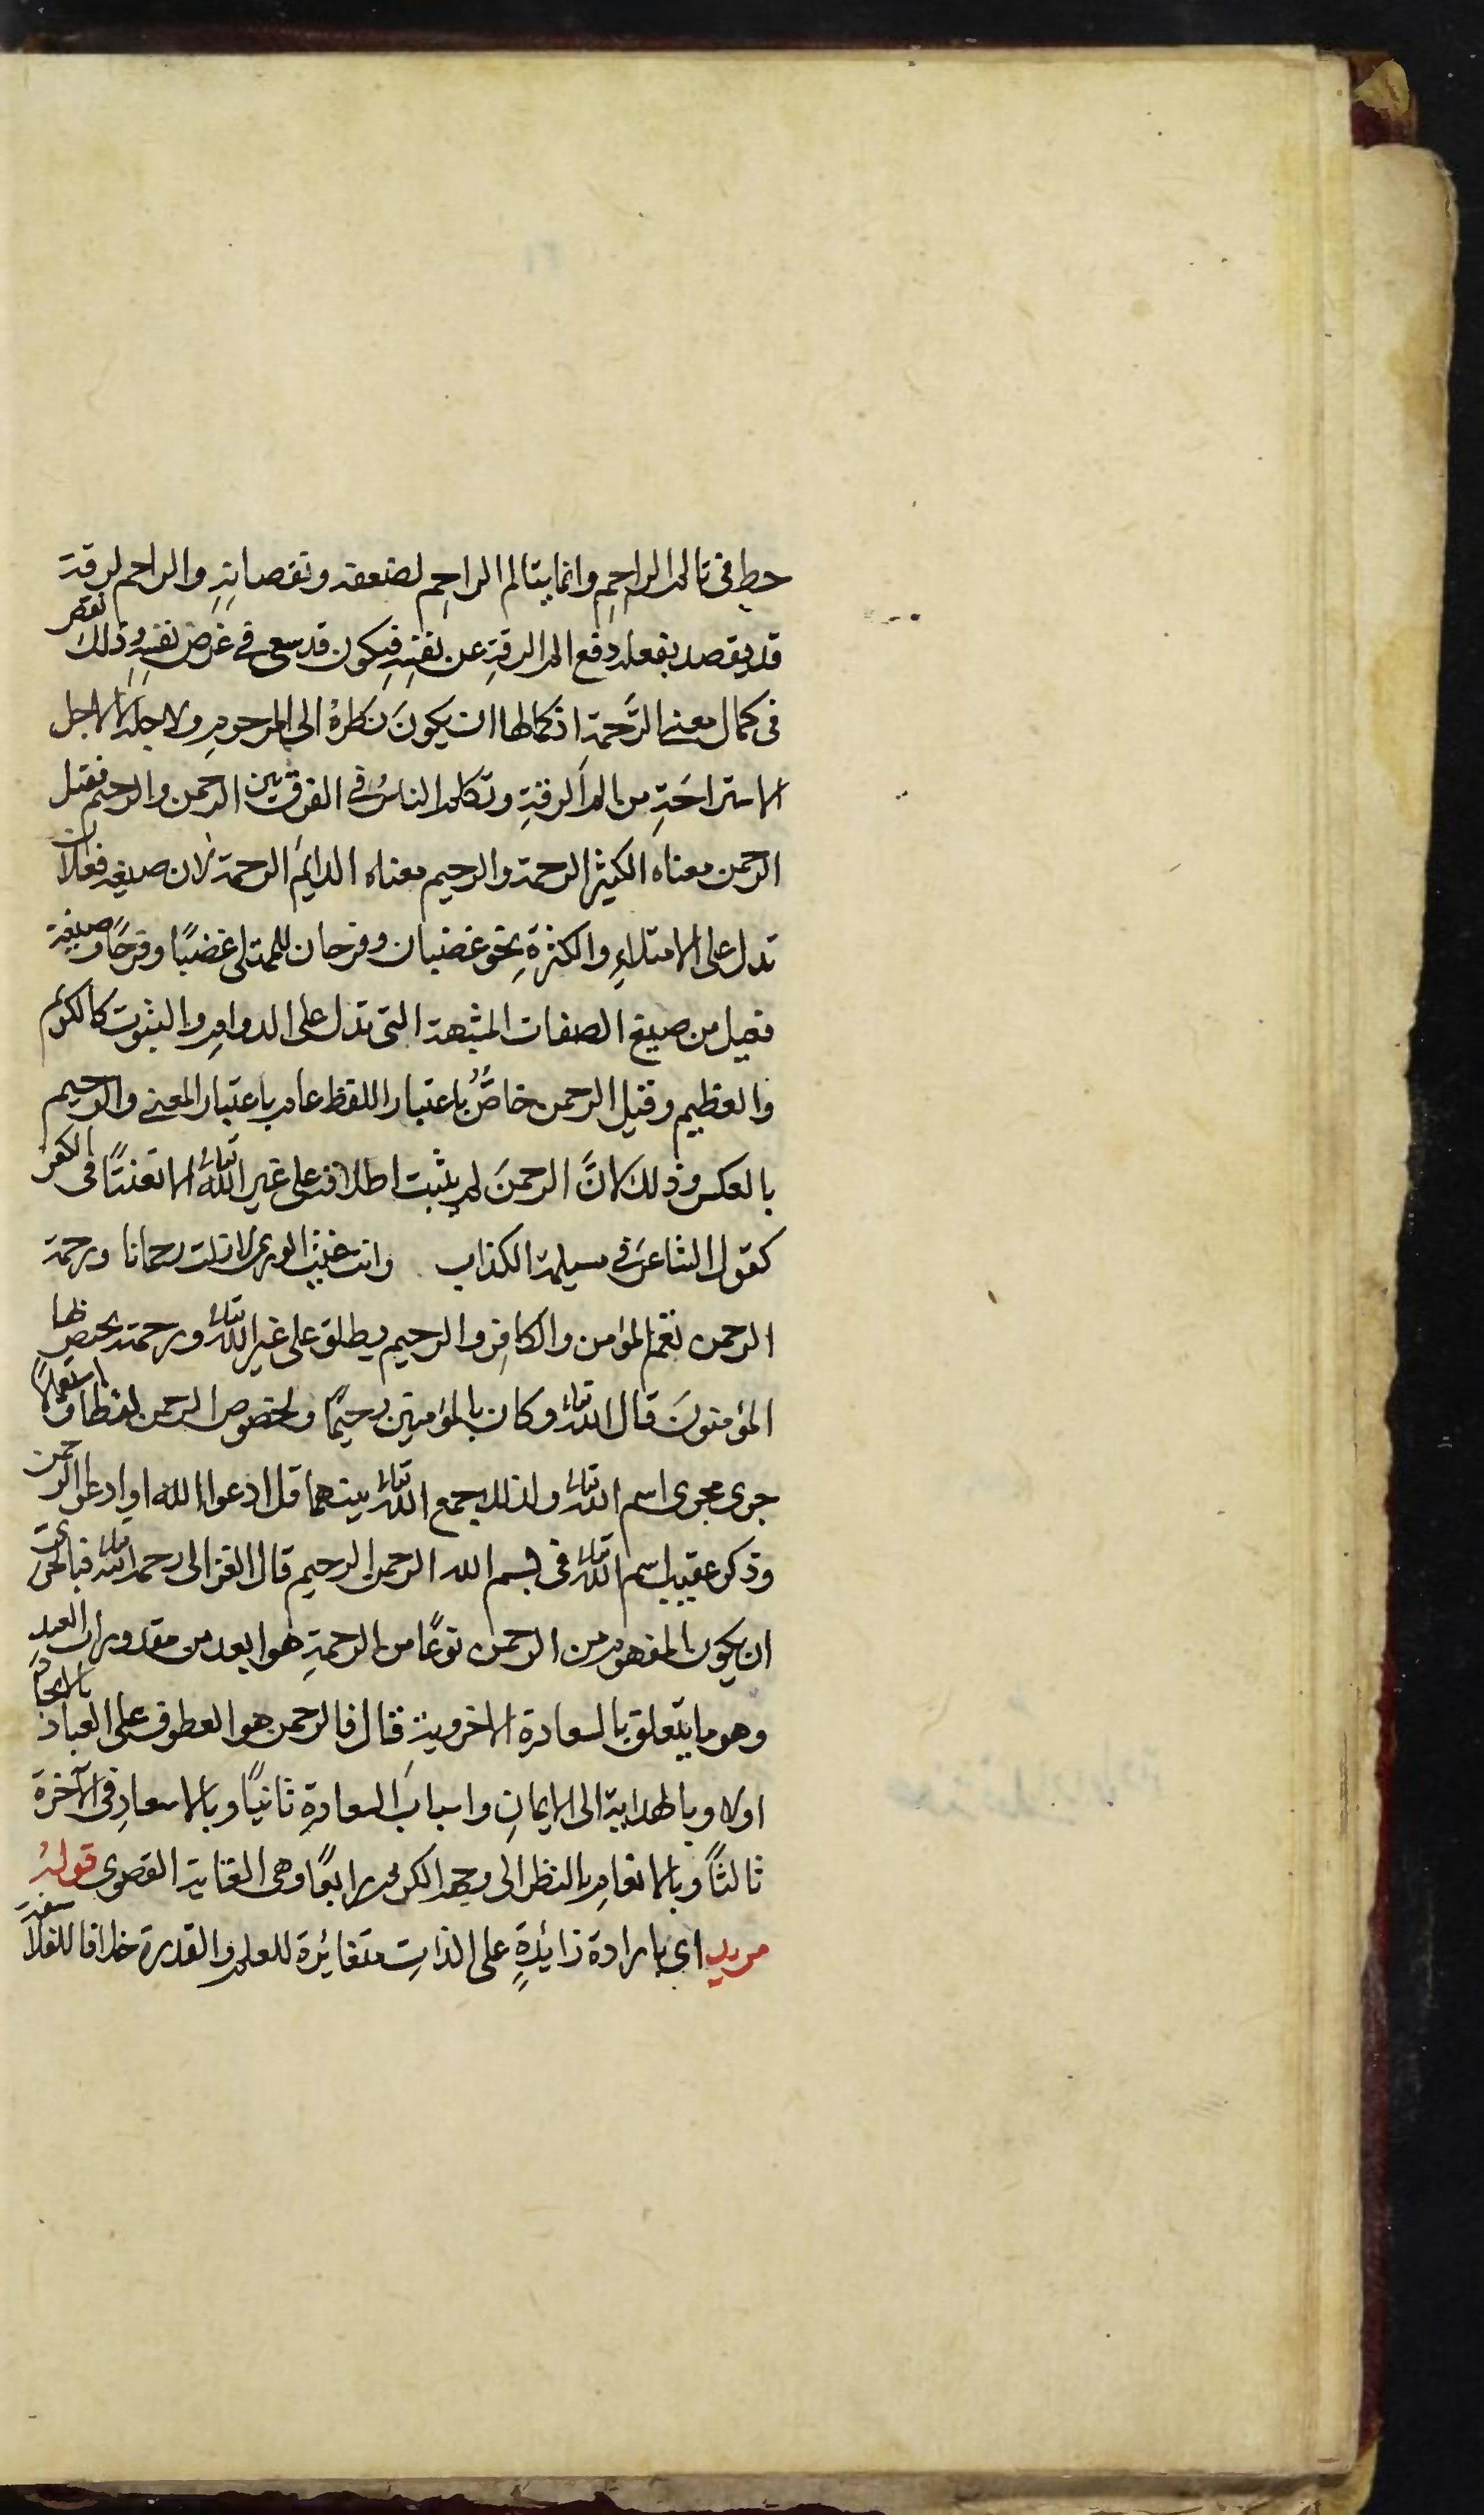 حط في تالم الراحم وانما يتالم الراحم لضعفه ونقصانه والراحم لرقة
قد يقصد بفعله دفع الم الرقة عن نفسه فيكون قد سعى في غرض نفسه وذلك نقص
فى كمال معنى الرَّحمة اذ كمالها ان يكونَ نَظرهُ الى المرحوم ولاجله لا لاجل
الاستراحَةِ من الم الرقةِ وتكلم الناسُ في الفرق بين الرحمن والرحيم فقيل
الرحمن معناه الكثير الرحمة والرحيم معناه الدايمُ الرحمة لان صيغه فعلان
تدل على الامتلاءِ والكثرةِ نحو غضبان وفرحان للممتلى غضبًا وفرحًا وصيغة
فعيل من صيغ الصفات المشبهة التى تدل على الدوامِ والثبوت كالكريم
والعظيم وقيل الرحمن خاصٌّ باعتبار اللفظ عام باعتبار المعنى والرحيم
بالعكس وذلك لانَّ الرحمنَ لم يثبت اطلاقه على غير الله تعالى الا تعنتًا فى الكفر
كقول الشاعر في مسيلمة الكذاب وانت غيث الورى لا زلت رحمانا ورحمة
الرحمن تعم المؤمن والكافِر والرحيم يطلق على غير الله تعالى ورحمته يختص بها
المؤمنونَ قال الله تعالى وكان بالمؤمنين رحيمًا ولخصوص الرحمن لفظا واستعمالًا
جرى مجرى اسم الله تعالى ولذلك جمع الله تعالى بينهما قل ادعوا الله او ادعوا الرحمن
وذكر عقيب اسم الله تعالى فى بسم الله الرحمن الرحيم قال الغزالى رحمه الله تعالى فبالحرى
ان يكون المفهوم من الرحمن نوعًا من الرحمةِ هو ابعد من مقدورات العبد
وهو ما يتعلق بالسعادة الاخروية قال فالرحمن هو العطوف على العباد بالايجاد
اولا وبالهداية الى الايمانِ واسبابَ السعادةِ ثانيًا وبالاسعادِ فى الآخرة
ثالثًا وبالانعامِ بالنظر الى وجهه الكريم رابعًا وهى الغاية القصوى قولهُ
مريد اى بارادة زائدةٍ على الذاتِ متغائرة للعلم والقدرة خلافا للفلاسفة